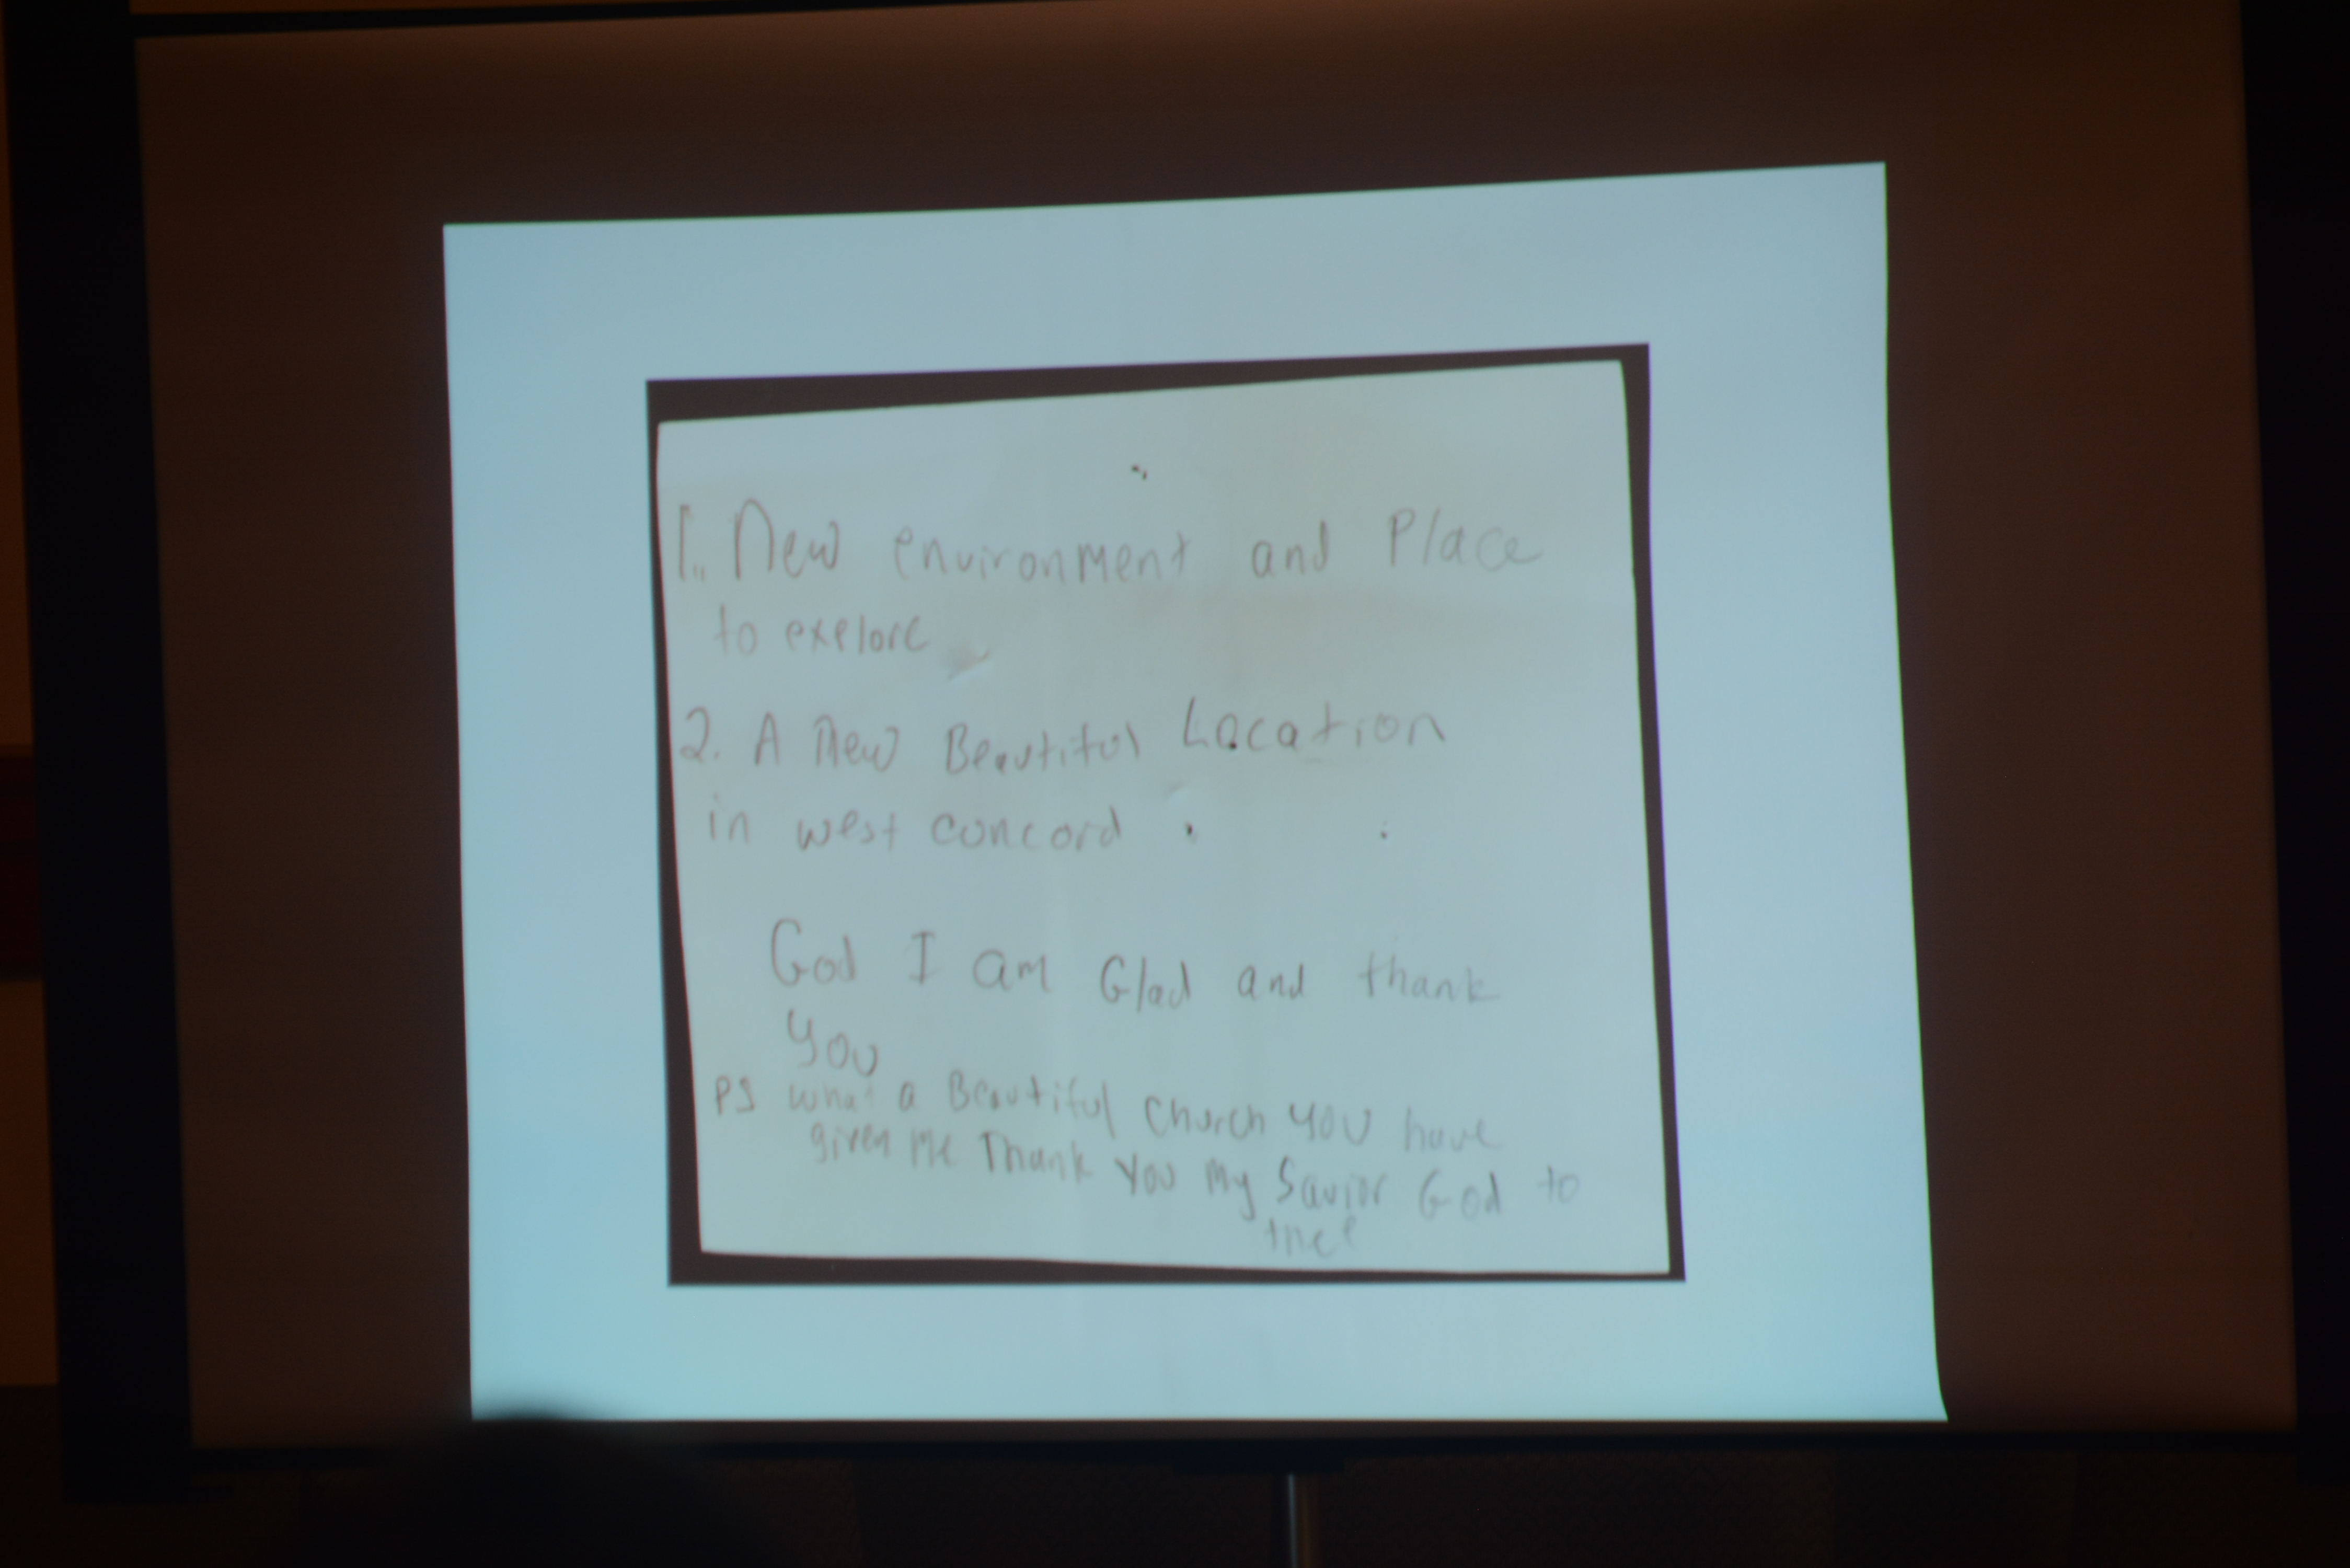 1. New environment and Place
to explore
2. A New Beautiful Location
in west concord
God I am Glad and thank
you
PS what a Beautiful Church you have
given me Thank You My Savior God to
thee